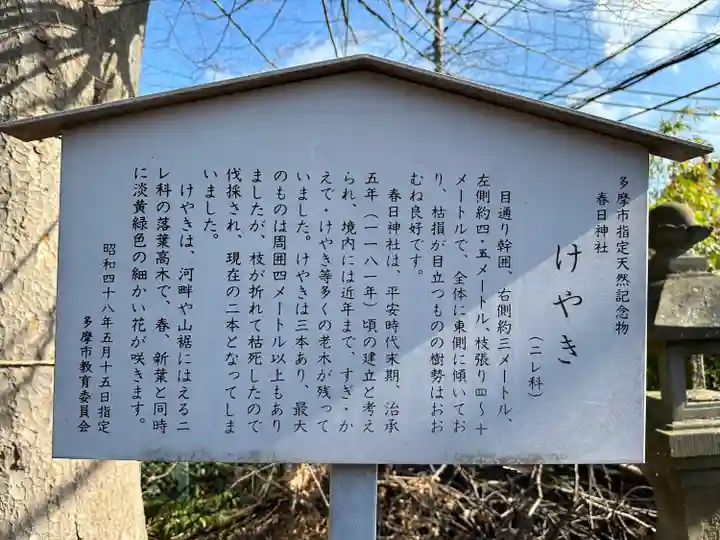 多摩市指定天然記念物
春日神社
けやき
(ニレ科)
目通り幹囲、右側約三メートル、
左側約四・五メートル、枝張り四~十
メートルで、全体に東側に傾いてお
り、枯損が目立つものの樹勢はおお
むね良好です。
春日神社は、平安時代末期、治承
五年(一一八一年)頃の建立と考え
られ、境内には近年まで、すぎ・か
えで・けやき等多くの老木が残って
いました。けやきは三本あり、最大
のものは周囲四メートル以上もあり
ましたが、枝が折れて枯死したので
伐採され、現在の二本となってしま
いました。
けやきは、河畔や山裾にはえるニ
レ科の落葉高木で、春、新葉と同時
に淡黄緑色の細かい花が咲きます。
昭和四十八年五月十五日指定
多摩市教育委員会